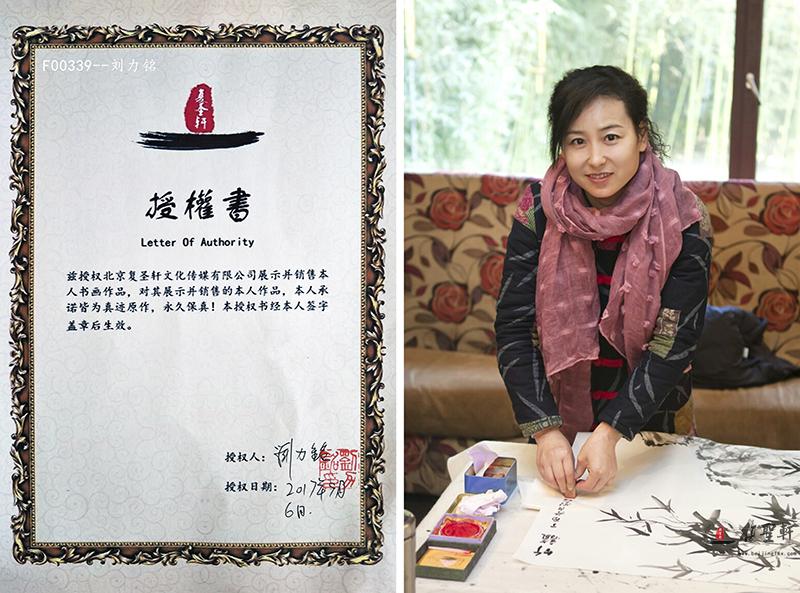 F00339--刘力铭
复圣轩
授權書
Letter Of Authority
兹授权北京复圣轩文化传媒有限公司展示并销售本
人书画作品，对其展示并销售的本人作品，本人承
诺皆为真迹原作，永久保真！本授权书经本人签字
盖章后生效。
授权人：刘力铭
授权日期：2017年 月
6日.
www.beijingfsx.com